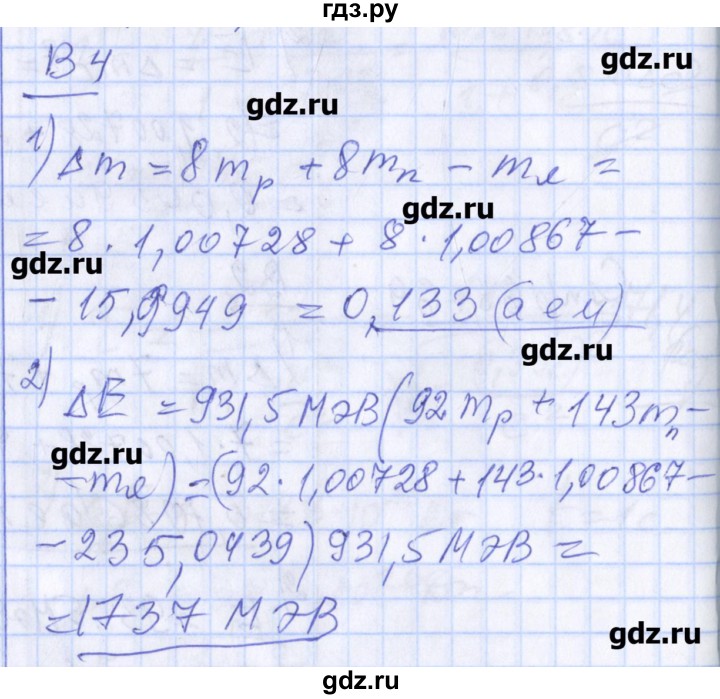 гдз.ру
В 4
gdz.ru
gdz.ru
1) Δm = 8m_p + 8m_n - m_я =
gdz.ru
= 8 · 1,00728 + 8 · 1,00867 -
gdz.ru
- 15,9949 = 0,133 (а е м)
gdz.ru
2) ΔE = 931,5 МэВ (92m_p + 143m_n -
gdz.ru
- m_я) = (92 · 1,00728 + 143 · 1,00867 -
- 235,0439) 931,5 МэВ =
= 1737 МэВ
gdz.ru
gdz.ru